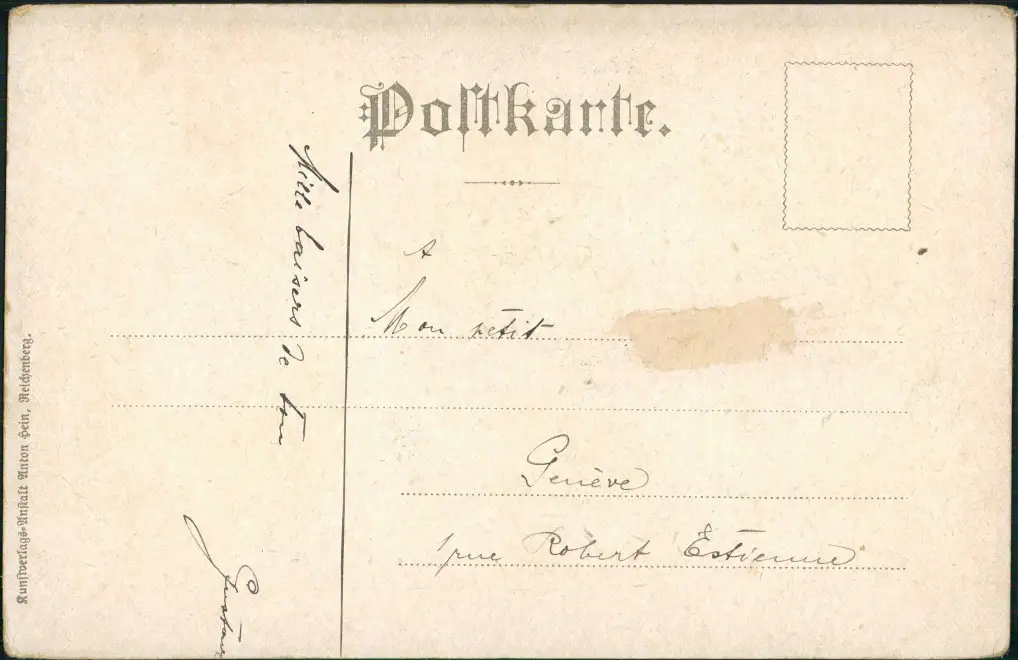 Postkarte.
A
Mon petit
Genève
1 rue Robert Estienne
Mille baisers de ton
Gustave
Kunstverlags-Anstalt Anton Hein, Reichenberg.